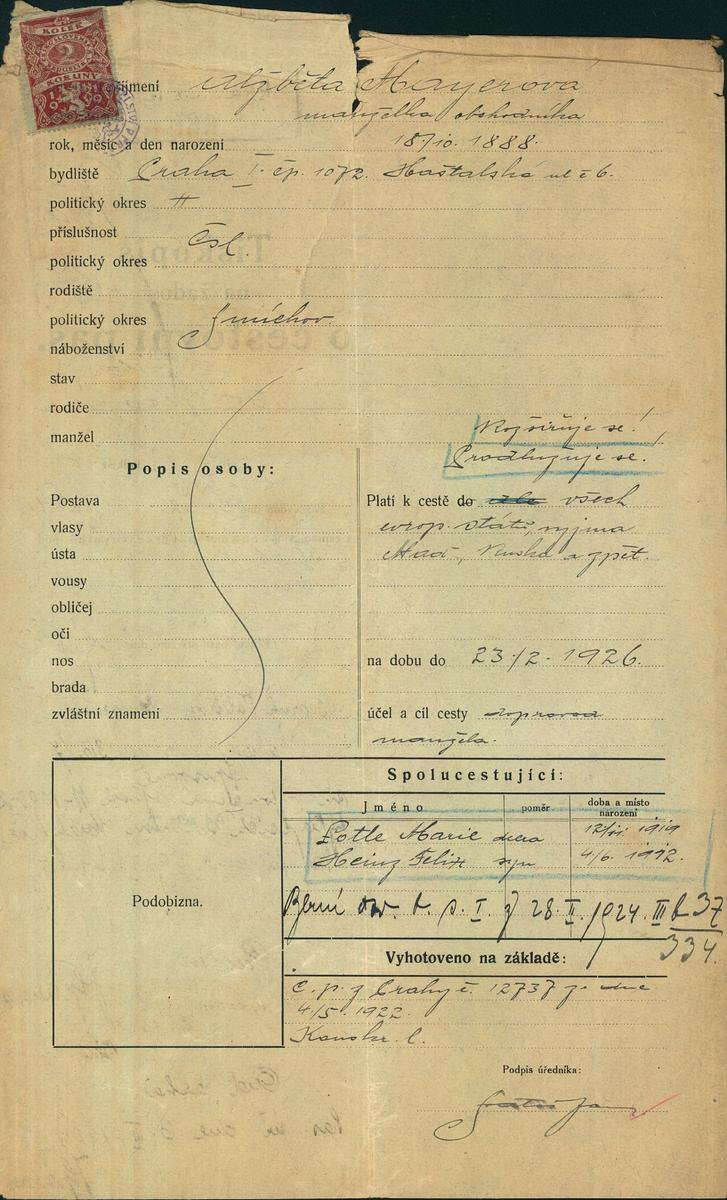 KOLEK
2
KORUNY
1919
jmení Alžběta Mayerová
manželka obchodníka
rok, měsíc a den narození 18/10. 1888.
bydliště Praha I. čp. 1072. Haštalská ul č 6.
politický okres "
příslušnost
politický okres Čsl.
rodiště
politický okres Smíchov.
náboženství
stav
rodiče
manžel
Rozšiřuje se!
Prodlužuje se!
Popis osoby:
Postava
vlasy
ústa
vousy
obličej
oči
nos
brada
zvláštní znamení
Platí k cestě do všech
evrop. států, vyjma
Maď, Ruska a zpět.
na dobu do 23/2. 1926.
účel a cíl cesty doprovod
manžela.
Spolucestující:
Jméno poměr doba a místo narození
Lotte Marie dcera 1919
Heinz Felix syn 4/6.
28. II. 1924. III b 37
334.
Podobizna.
Vyhotoveno na základě:
C. p. z Prahy č. 12737 ze dne
4/5. 1922.
Podpis úředníka: